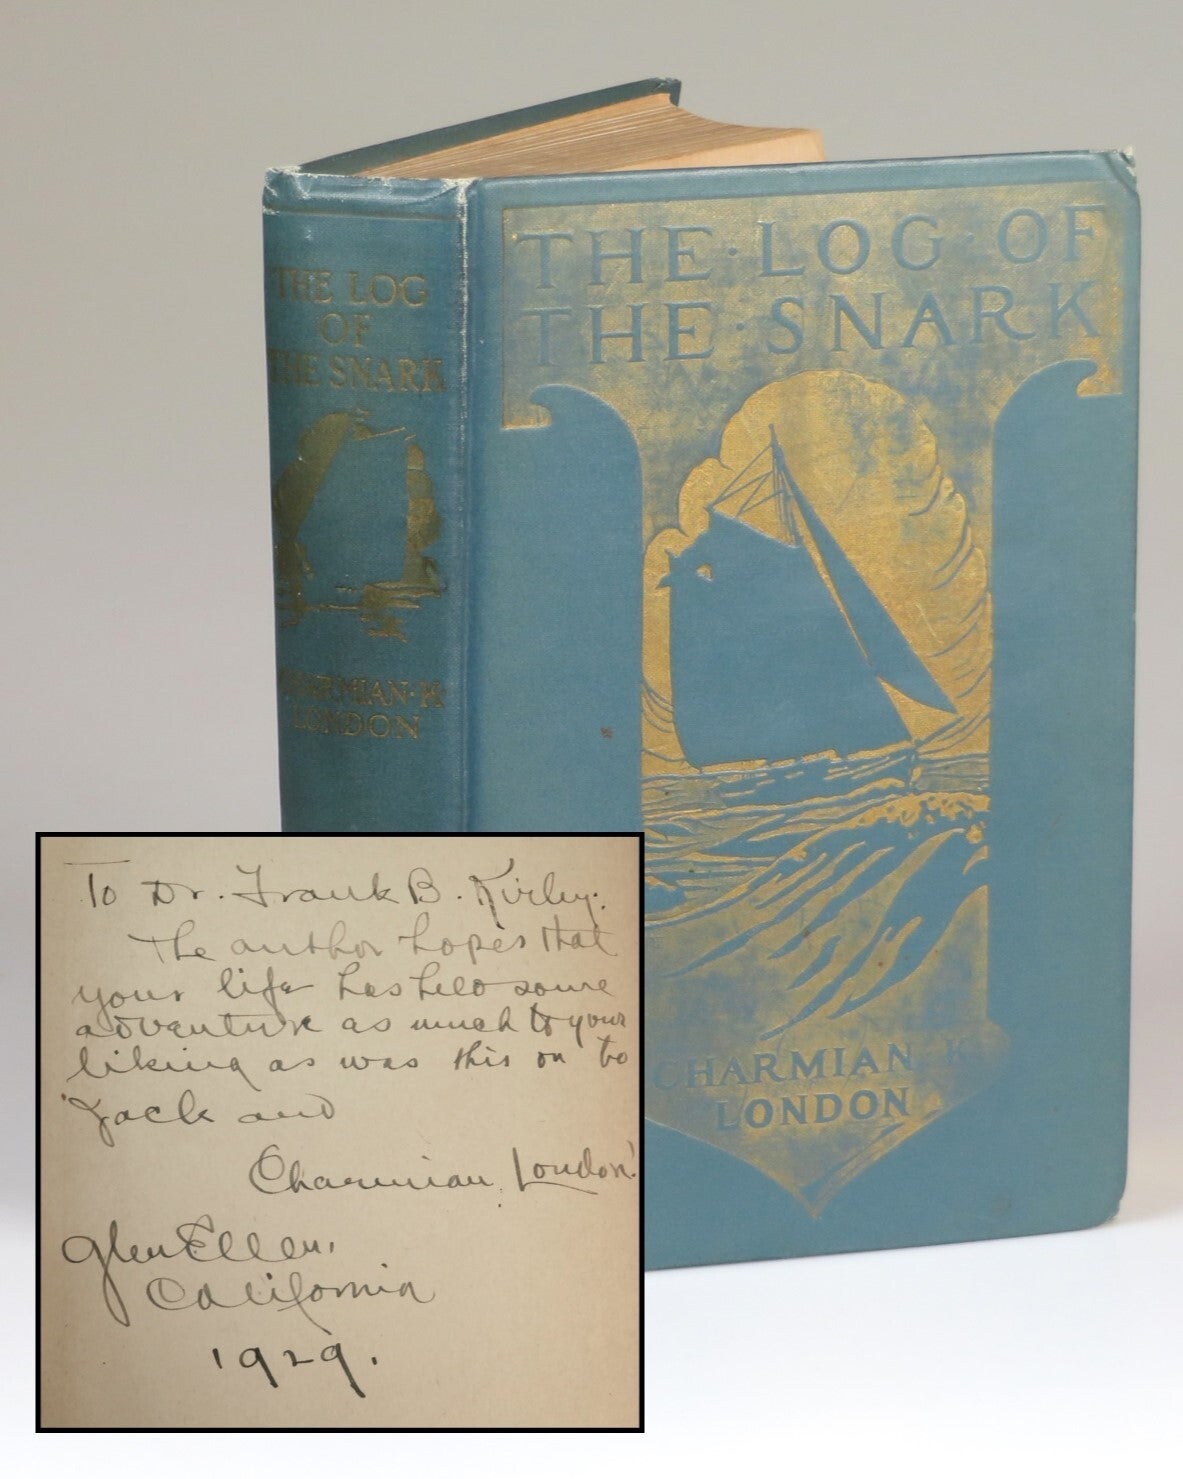 THE LOG
OF
THE SNARK
CHARMIAN·K
LONDON
THE·LOG·OF
THE·SNARK
CHARMIAN·K
LONDON
To Dr. Frank B. Kirby:
The author hopes that
your life has held some
adventure as much to your
liking as was this on to
Jack and
Charmian London.
Glen Ellen,
California
1929.